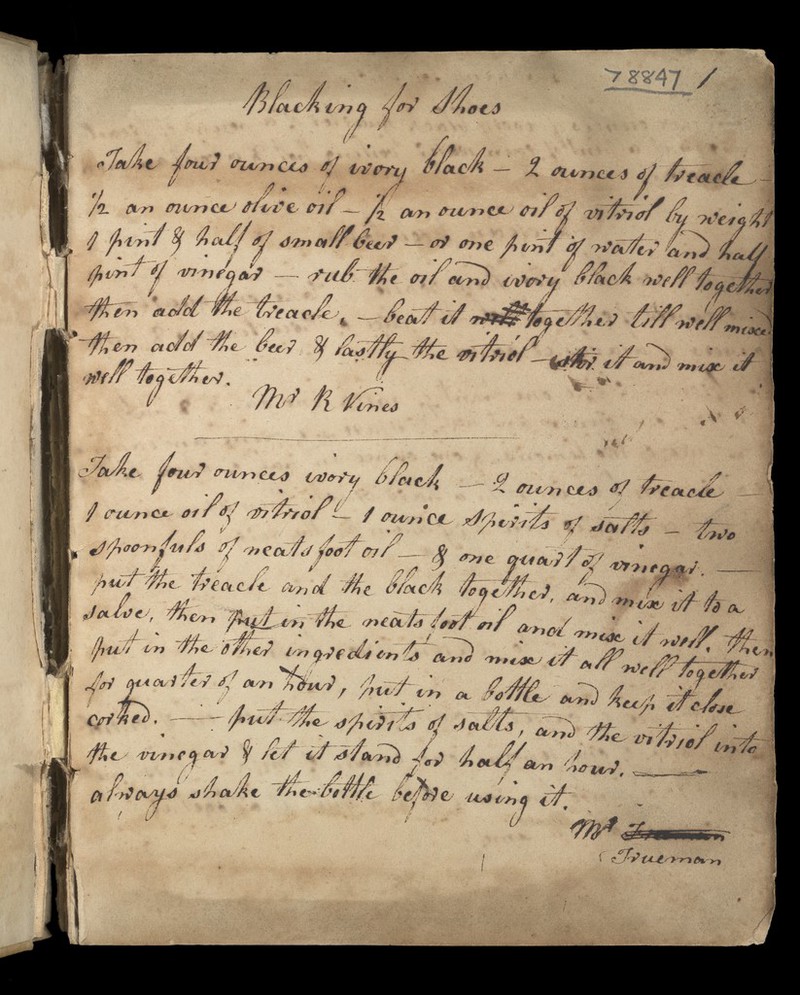 78847 1
Blacking for Shoes
Take four ounces of ivory black — 2 ounces of treacle —
1/2 an ounce olive oil — 1/2 an ounce oil of vitriol by weight
1 pint & half of small beer — or one pint of water and half
pint of vinegar — rub the oil and ivory black well together
then add the treacle, — beat it together till well mixed
then add the beer & lastly the vitriol — stir it and mix it
well together.
Mr R Vines
Take four ounces ivory black — 2 ounces of treacle —
1 ounce oil of vitriol — 1 ounce Spirits of salts — two
spoonfuls of neats foot oil — & one quart of vinegar. —
put the treacle and the black together, and mix it to a
salve, then put in the neats foot oil and mix it well, then
put in the other ingredients and mix it all well together
for quarter of an hour, put in a bottle and keep it close
corked. — put the spirits of salts, and the vitriol into
the vinegar & let it stand for half an hour. —
always shake the bottle before using it.
Mr
Trueman